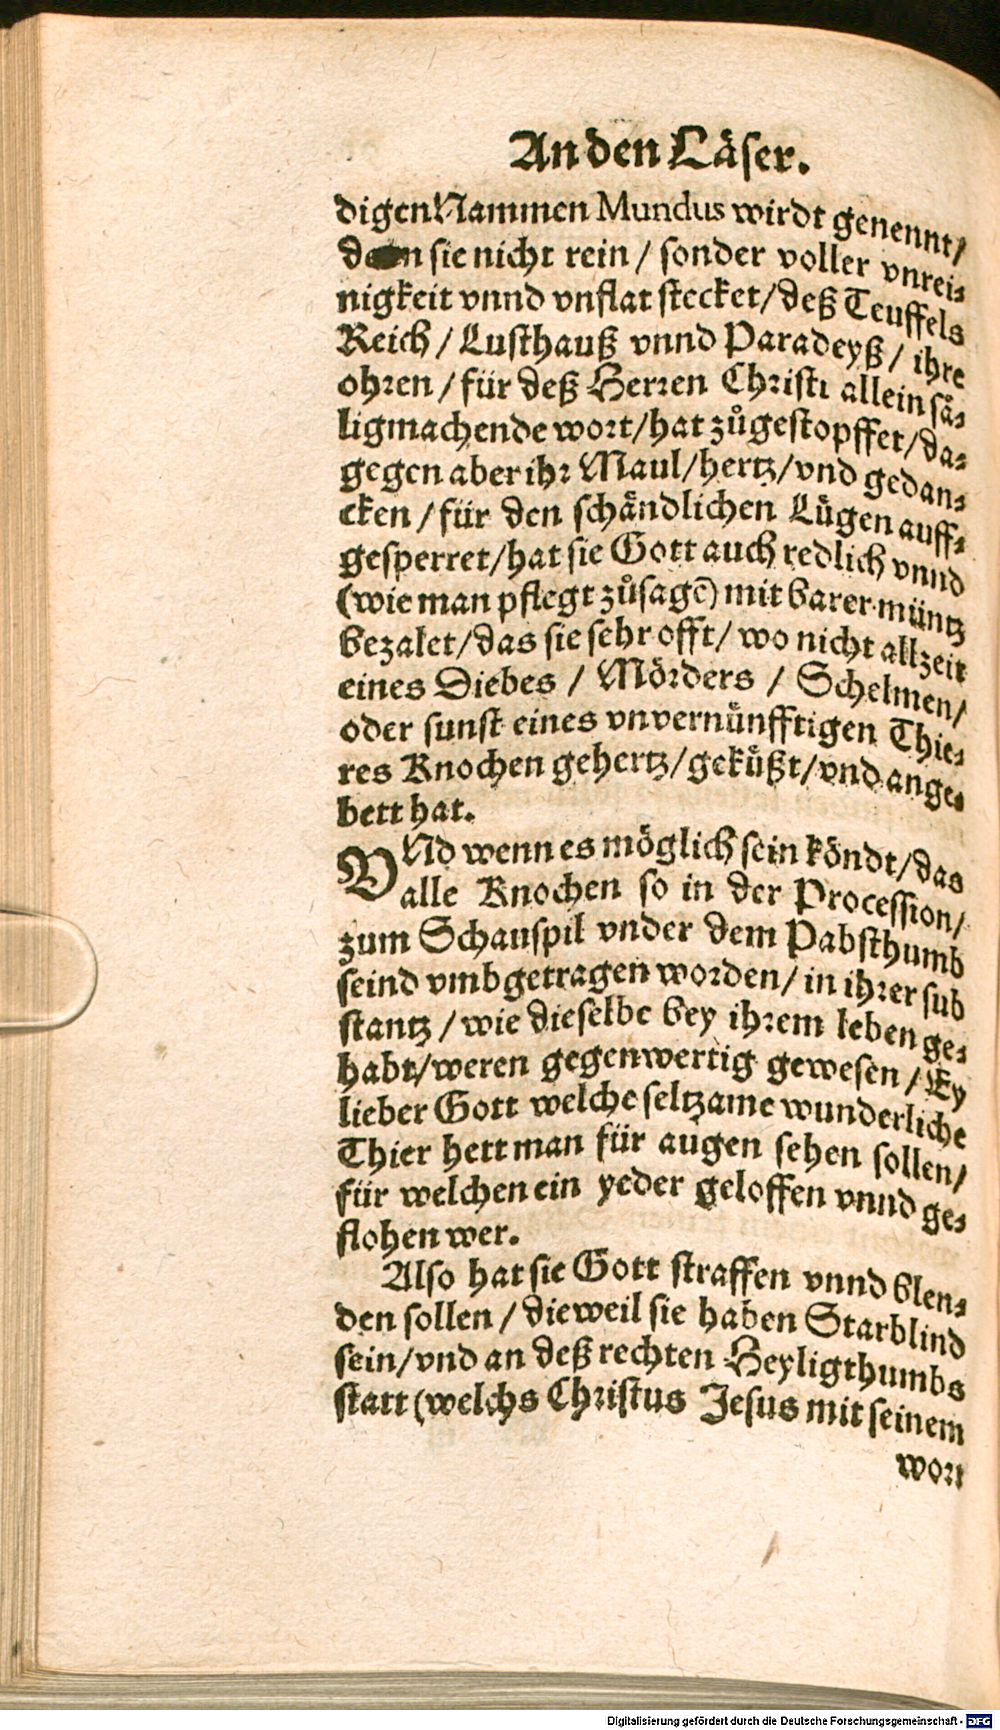 An den Läser.
digen Nammen Mundus wirdt genennt/
dann sie nicht rein / sonder voller vnrei⸗
nigkeit vnnd vnflat stecket/deß Teuffels
Reich / Lusthauß vnnd Paradeyß / ihre
ohren / für deß Herren Christi allein sä⸗
ligmachende wort/hat zůgestopffet/da⸗
gegen aber ihr Maul/hertz/vnd gedan⸗
cken / für den schändlichen Lügen auff⸗
gesperret/hat sie Gott auch redlich vnnd
(wie man pflegt zůsagē) mit barer müntz
bezalet/das sie sehr offt/ wo nicht allzeit
eines Diebes / Mörders / Schelmen/
oder sunst eines vnvernünfftigen Thie⸗
res Knochen gehertz/geküßt/vnd ange⸗
bett hat.
VNd wenn es möglich sein köndt/das
alle Knochen so in der Procession/
zum Schauspil vnder dem Pabsthumb
seind vmbgetragen worden/ in ihrer sub
stantz / wie dieselbe bey ihrem leben ge⸗
habt/weren gegenwertig gewesen / Ey
lieber Gott welche seltzame wunderliche
Thier hett man für augen sehen sollen/
für welchen ein yeder geloffen vnnd ge⸗
flohen wer.
Also hat sie Gott straffen vnnd blen⸗
den sollen / dieweil sie haben Starblind
sein/vnd an deß rechten Heyligthumbs
statt (welchs Christus Jesus mit seinem
wort
Digitalisierung gefördert durch die Deutsche Forschungsgemeinschaft - DFG